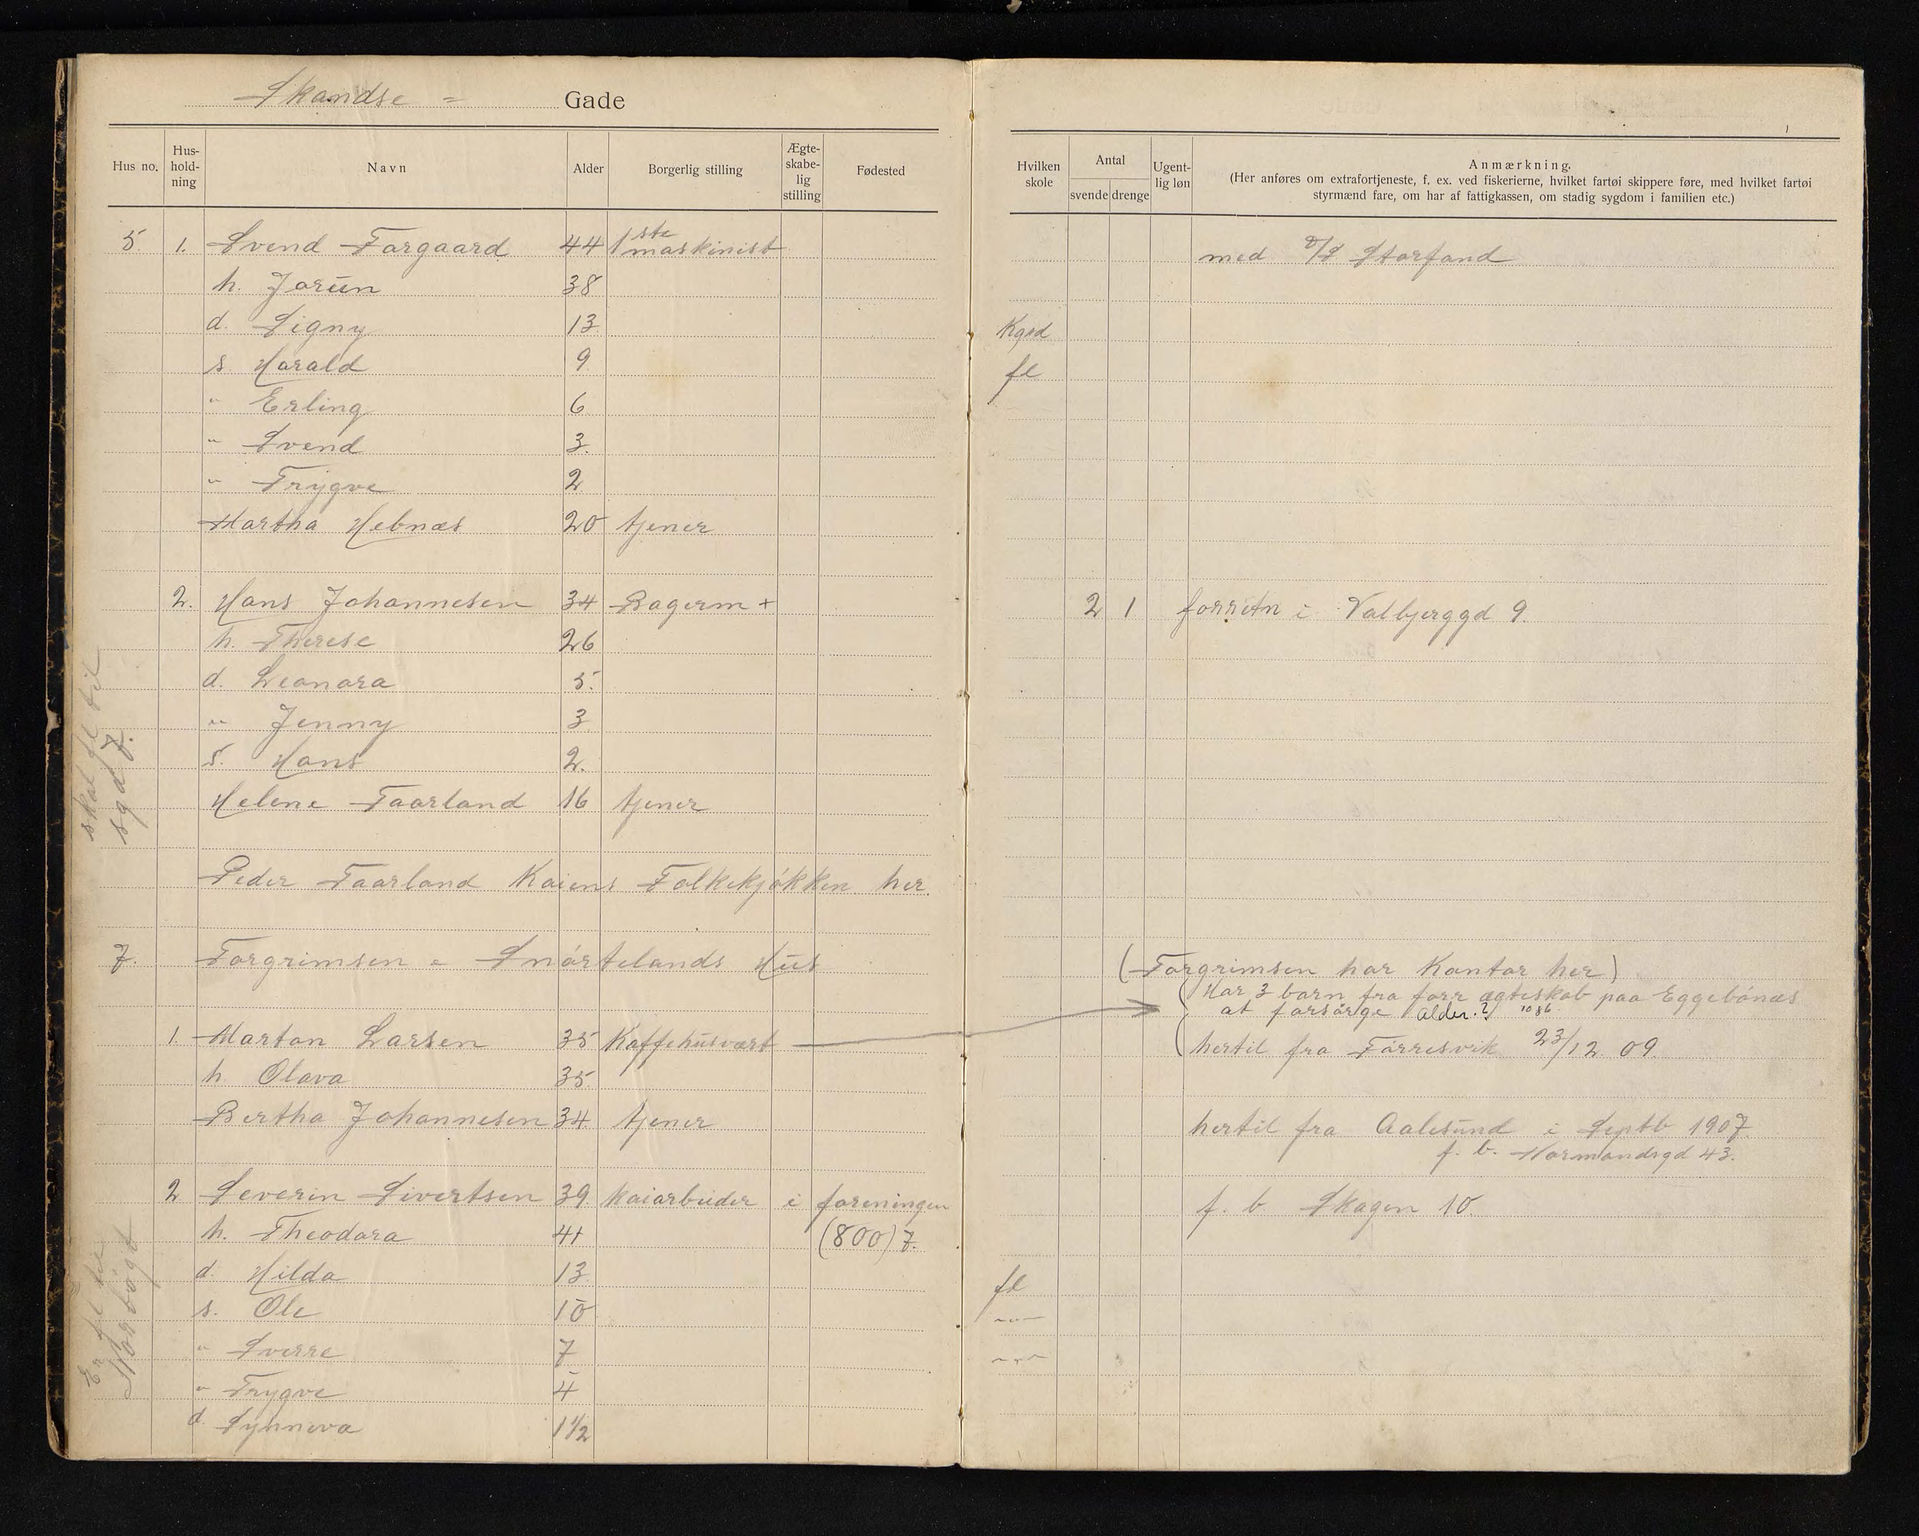 Skandse = Gade
Hus no. Hus-hold-ning Navn Alder Borgerlig stilling Ægte-skabe-lig stilling Fødested
Hvilken skole Antal svende drenge Ugent-lig løn Anmærkning.
(Her anføres om extrafortjeneste, f. ex. ved fiskerierne, hvilket fartøi skippere føre, med hvilket fartøi
styrmænd fare, om har af fattigkassen, om stadig sygdom i familien etc.)
5. 1. Svend Torgaard 44 1ste maskinist med D/S Storfond
h. Jorun 38
d. Signy 13 Kgsd
s Harald 9 fl
" Erling 6
" Svend 3.
" Trygve 2
Martha Hebnæs 20 tjener
2. Hans Johannesen 34 Bagerm + 2 1 forretn i Valbjerggd 9.
h. Therese 26
d. Leonora 5.
" Jenny 3
s. Hans 2.
Helene Taarland 16 tjener
skal fl til
sgd 7.
Peder Taarland Kaiens Folkekjøkken her.
7. Torgrimsen & Snørtelands Hus (Torgrimsen har Kontor her)
(Har 3 barn fra forr ægteskab paa Eggebönæs
at forsørge alder.?)
1. Morton Larsen 35 Kaffehusvært hertil fra Förresvik 23/12 09.
h. Olava 35
Bertha Johannesen 34 tjener hertil fra Aalesund i Septb 1907.
f. b. Normandsgd 43.
2 Severin Sivertsen 39 kaiarbeider i foreningen f. b Skagen 10.
h. Theodora 41 (800) 7.
d. Hilda 13 fl
s. Ole 10 -"-
" Sverre 7 -"-
" Trygve 4
d. Synneva 1 1/2
Er fl til